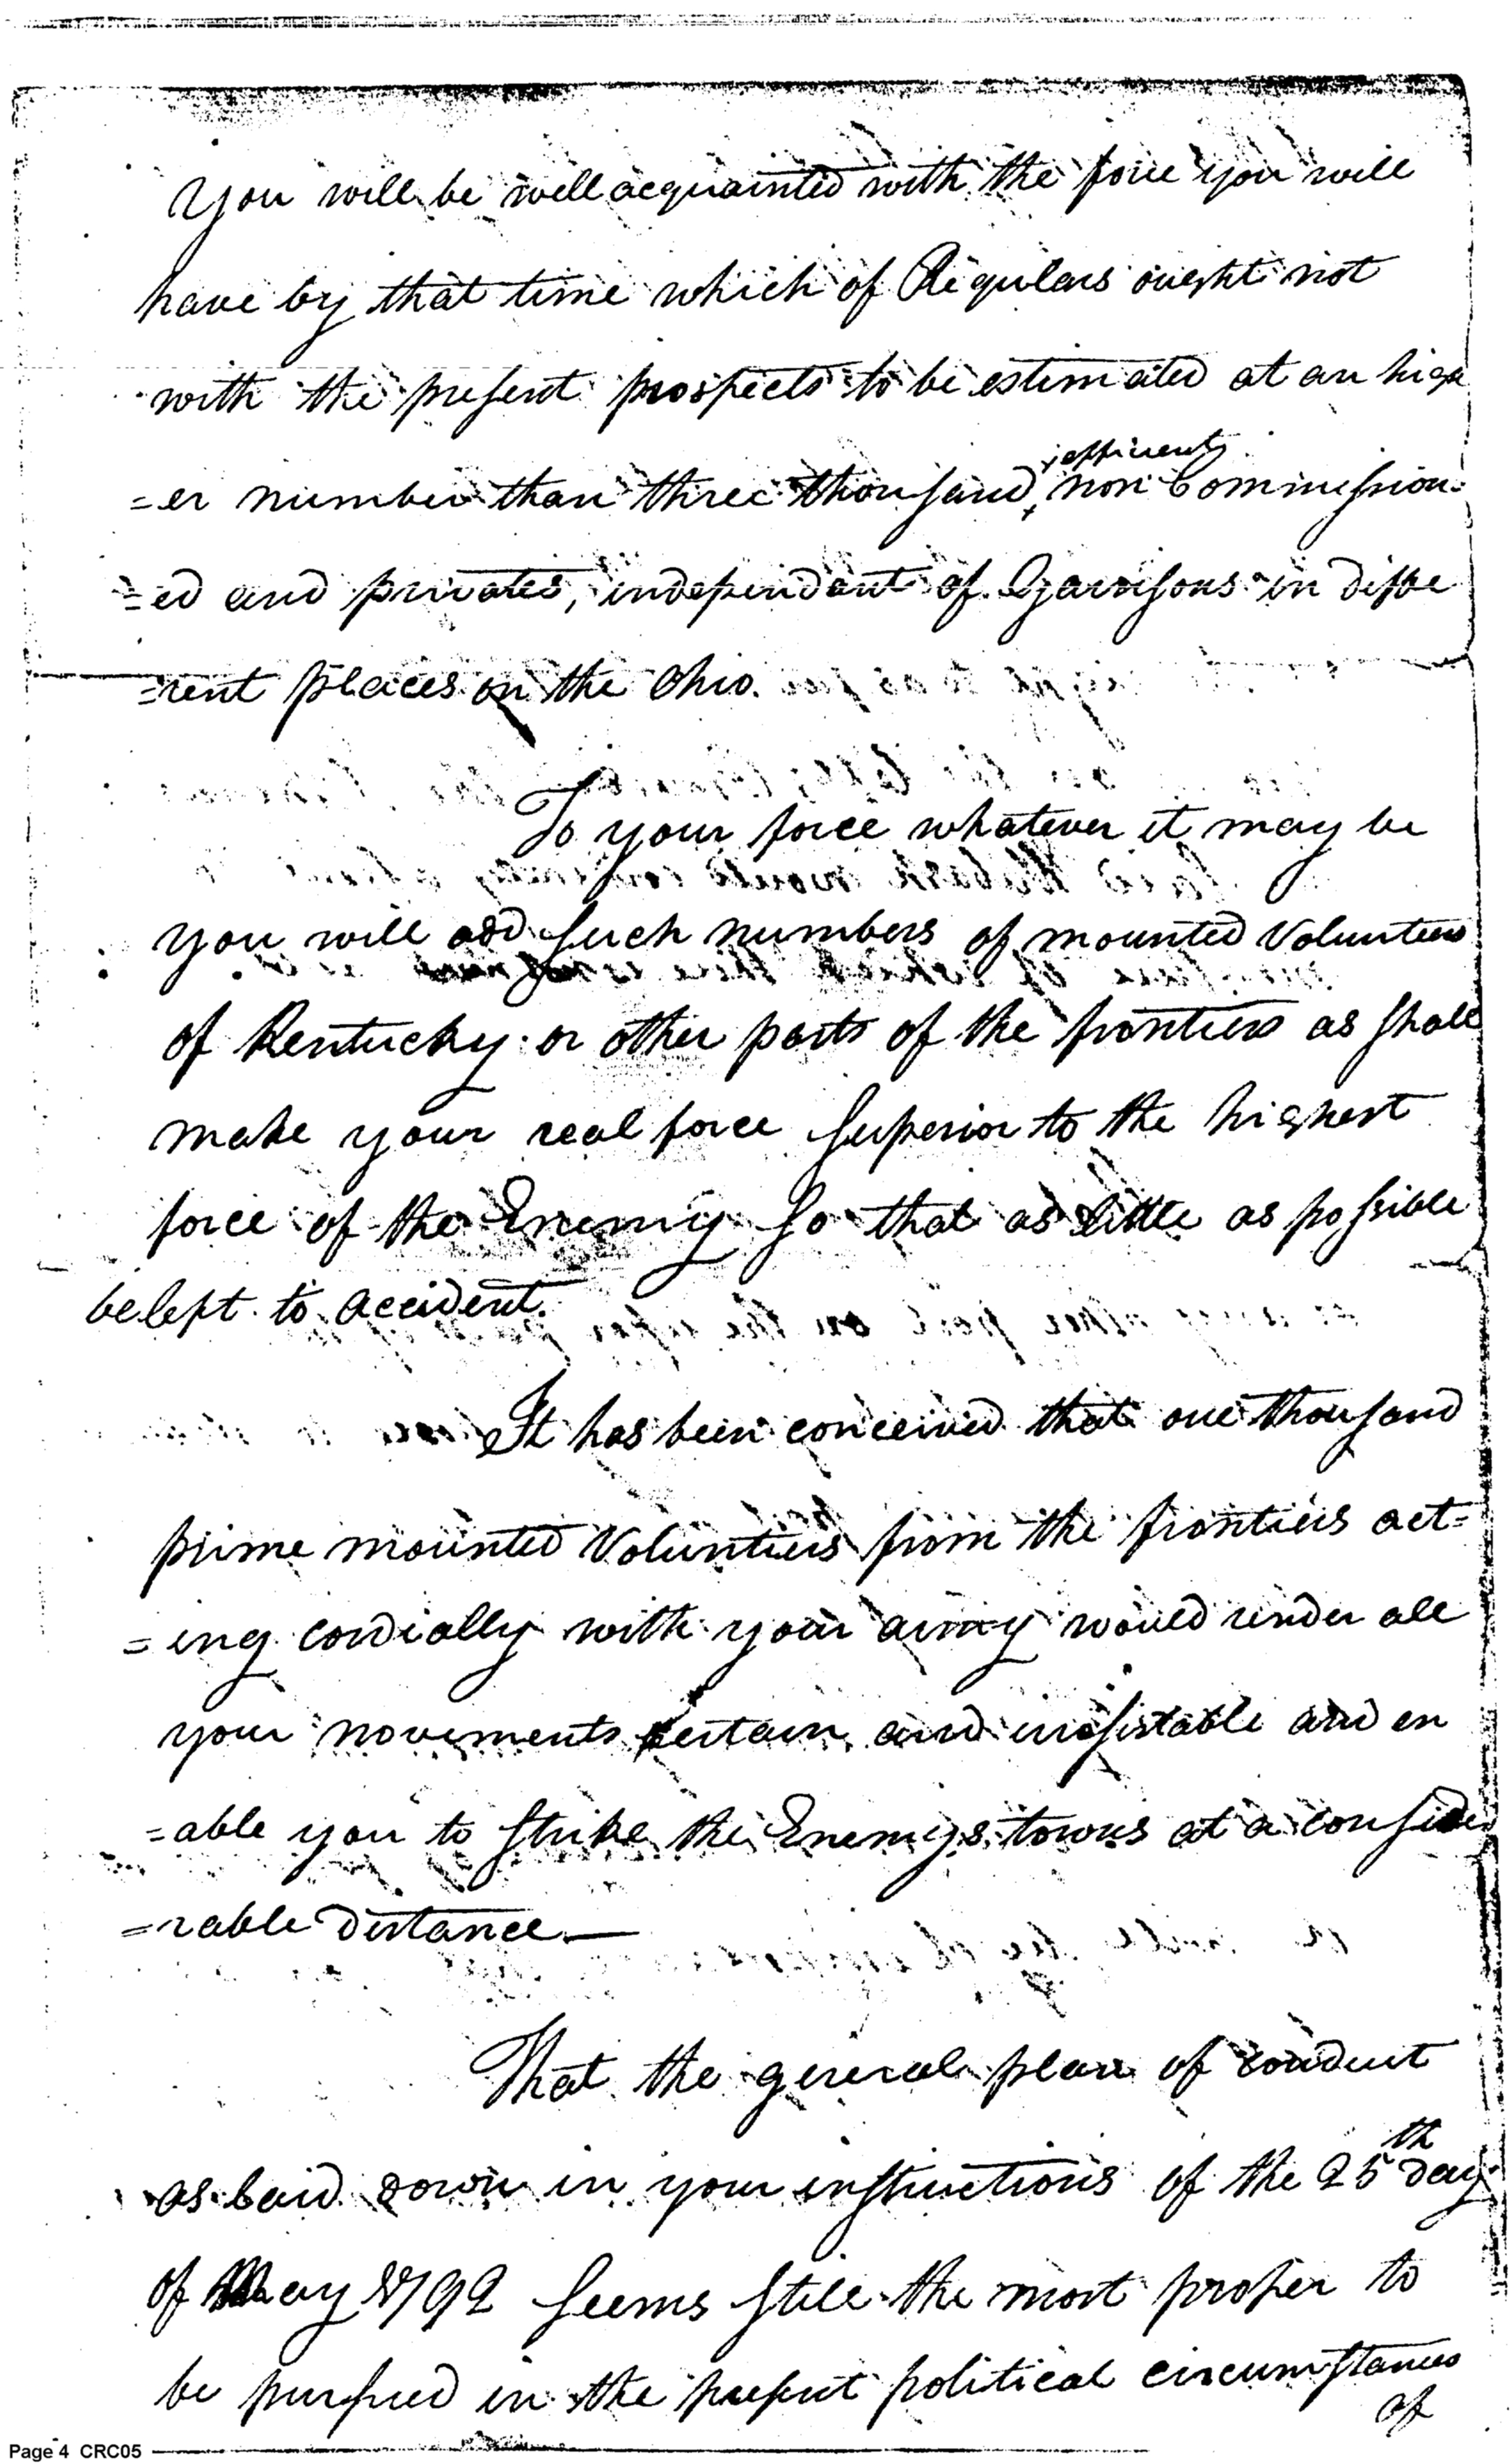 You will be well acquainted with the force you will
have by that time which of Regulars ought not
with the present prospects to be estimated at an high
=er number than three thousand, efficient, non Commission=
=ed and privates, independant of Garrisons in diffe
=rent places on the Ohio.
To your force whatever it may be
you will add such numbers of mounted Volunteers
of Kentucky or other parts of the frontiers as shall
make your real force superior to the highest
force of the Enemy so that as little as possible
be left to accident.
It has been conceived that one thousand
prime mounted Volunteers from the frontiers act=
=ing cordially with your army would render all
your movements certain and irresistable and en
=able you to strike the Enemys towns at a conside
=rable distance.—
That the general plan of conduct
as laid down in your instructions of the 25th day
of May 1792 seems still the most proper to
be pursued in the present political circumstances
of
Page 4 CRC05